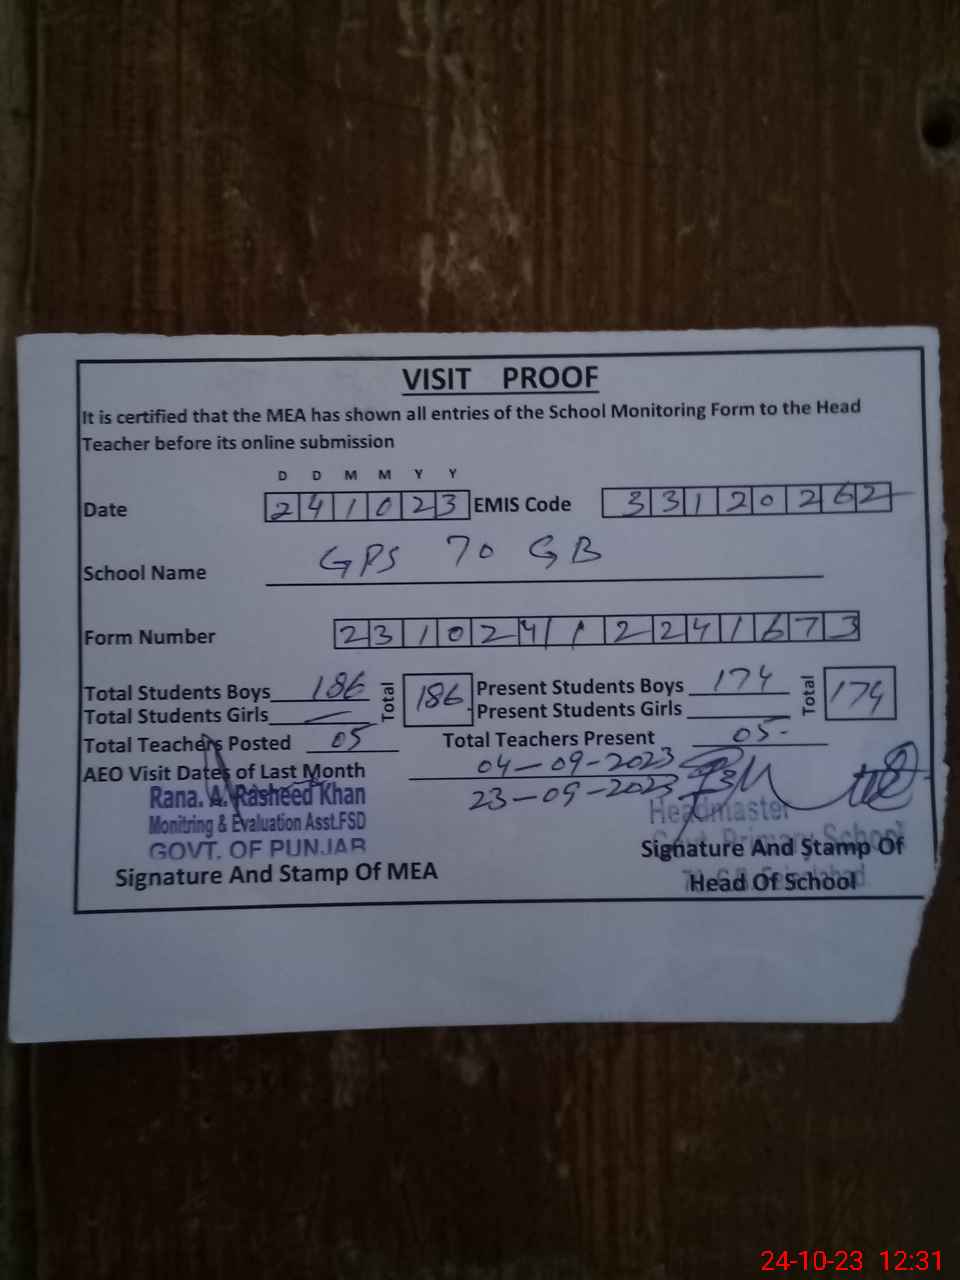 VISIT PROOF
It is certified that the MEA has shown all entries of the School Monitoring Form to the Head
Teacher before its online submission
D D M M Y Y
Date 241023 EMIS Code 33120262
School Name GPS 70 GB
Form Number 2310241122241673
Total Students Boys 186 Total 186 Present Students Boys 174 Total 174
Total Students Girls — Present Students Girls
Total Teachers Posted 05 Total Teachers Present 05-
AEO Visit Dates of Last Month 04-09-2023
23-09-2023
Rana. A. Rasheed Khan
Monitring & Evaluation Asst.FSD
GOVT. OF PUNJAB
Signature And Stamp Of MEA
Headmaster
Govt. Primary School
70 G.B. Faisalabad
Signature And Stamp Of
Head Of School
24-10-23 12:31